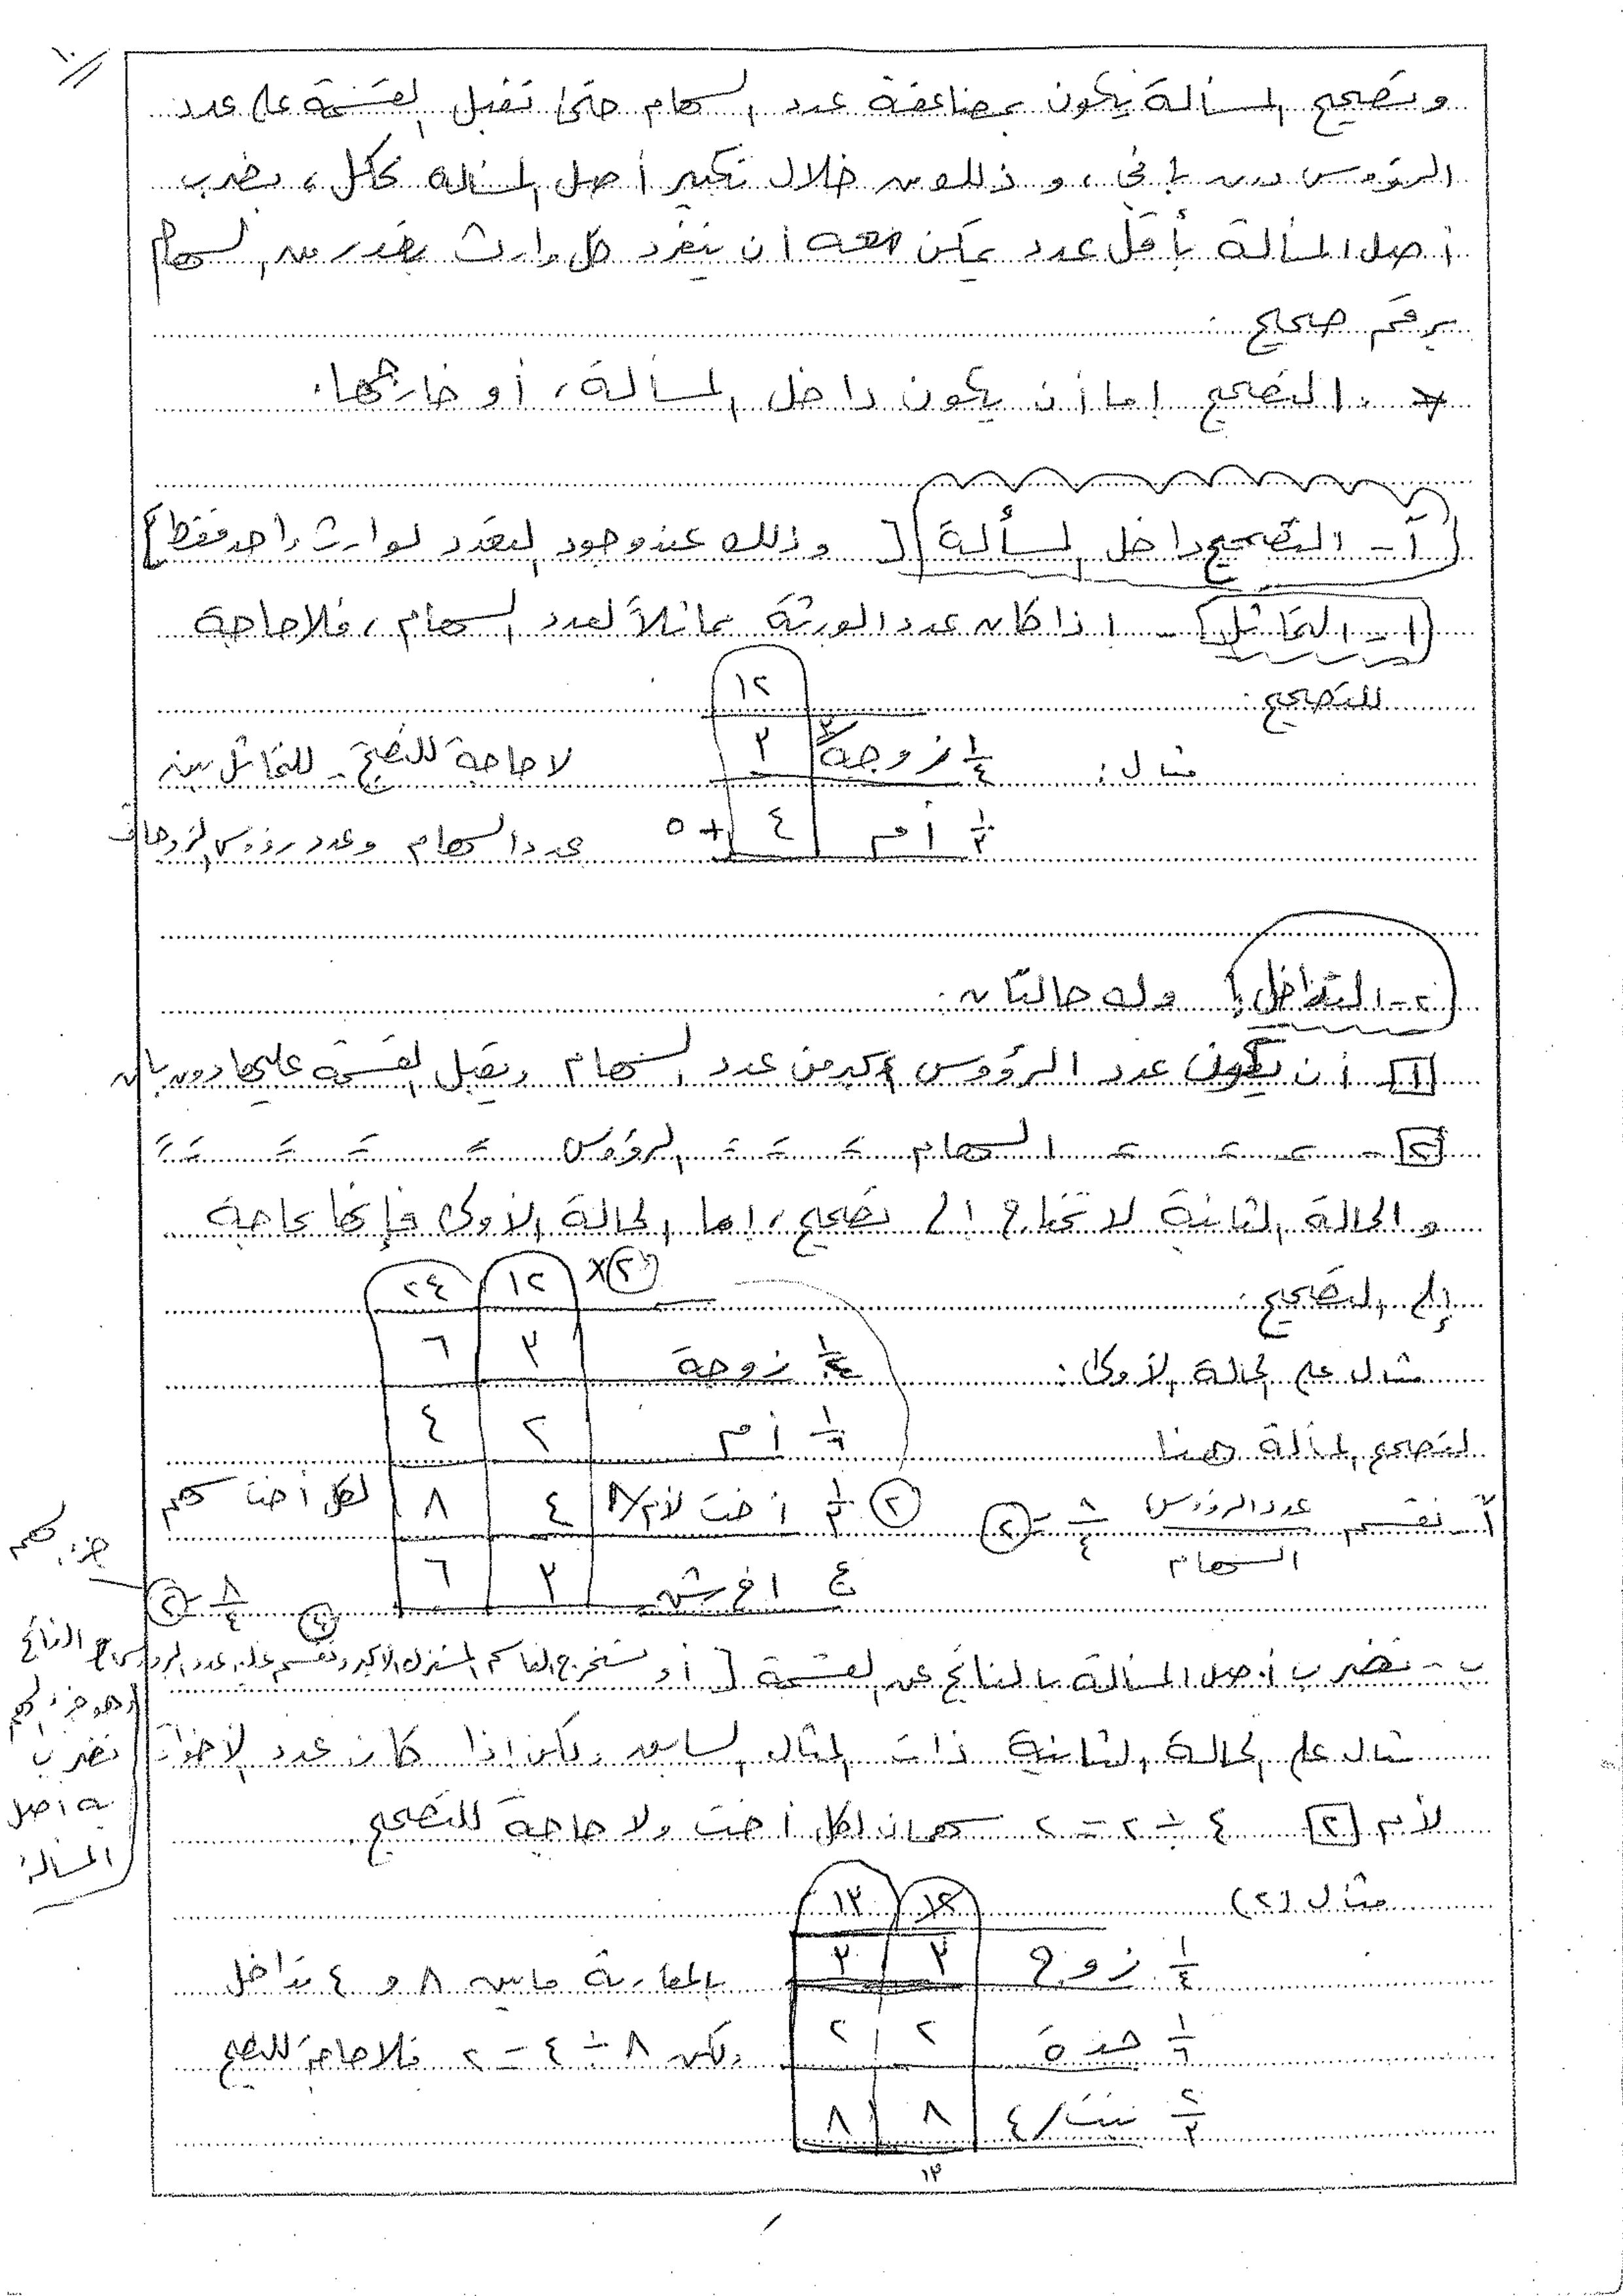 ١٠
وتصحيح المسألة يكون بمضاعفة عدد السهام حتى تقبل القسمة على عدد
الرؤوس دون باقي، وذلك من خلال تكبير أصل المسألة ككل، بضرب
أصل المسألة بأقل عدد يمكن معه أن ينفرد كل وارث بقدر من السهام
برقم صحيح.
* التصحيح إما أن يكون داخل المسألة، أو خارجها.
آ - التصحيح داخل المسألة [ وذلك عند وجود التعدد لوارث واحد فقط ]
١ - التماثل - اذا كان عدد الورثة مماثلاً لعدد السهام، فلا حاجة
للتصحيح.
١٢
مثال: ١/٤ زوجة ٣ ٣ لا حاجة للتصحيح - للتماثل بين
١/٣ أم ٤ + ٥ عدد السهام وعدد رؤوس الزوجات
٢ - التداخل: وله حالتان.
[١] أن يكون عدد الرؤوس أكبر من عدد السهام ويقبل القسمة عليها دون باق
[٢] - = = = السهام = = = الرؤوس = = = = =
والحالة الثانية لا تحتاج إلى تصحيح، اما الحالة الأولى فإنها بحاجة
إلى التصحيح. ×٢ ١٢ ٢٤
مثال على الحالة الأولى: ١/٤ زوجة ٣ ٦
لتصحيح المسألة هنا ١/٦ أم ٢ ٤
آ - نقسم عدد الرؤوس / السهام ٨/٤ = ٢ ٢ ١/٣ أخت لأم/٨ ٤ ٨ لكل أخت سهم
ع اخ ش ٣ ٦ ٨/٤ = ٢ جزء سهم
ب - نضرب أصل المسألة بالناتج عن القسمة [ أو نستخرج القاسم المشترك الأكبر ونقسم عليه عدد الرؤوس الناتج
وهو جزء السهم
نضرب
به أصل
المسألة
مثال على الحالة الثانية ذات المثال السابق ولكن اذا كان عدد الأخوات
لأم [٢] ٤ ÷ ٢ = ٢ سهمان لكل أخت ولا حاجة للتصحيح
مثال (٢) ١٢ ١٣
١/٤ زوج ٣ ٣ بالمقارنة ما بين ٨ و ٤ تداخل
١/٦ جدة ٢ ٢ ولكن ٨ ÷ ٤ = ٢ فلا حاجة للتصحيح
٢/٣ بنت/٤ ٨ ٨
١٣